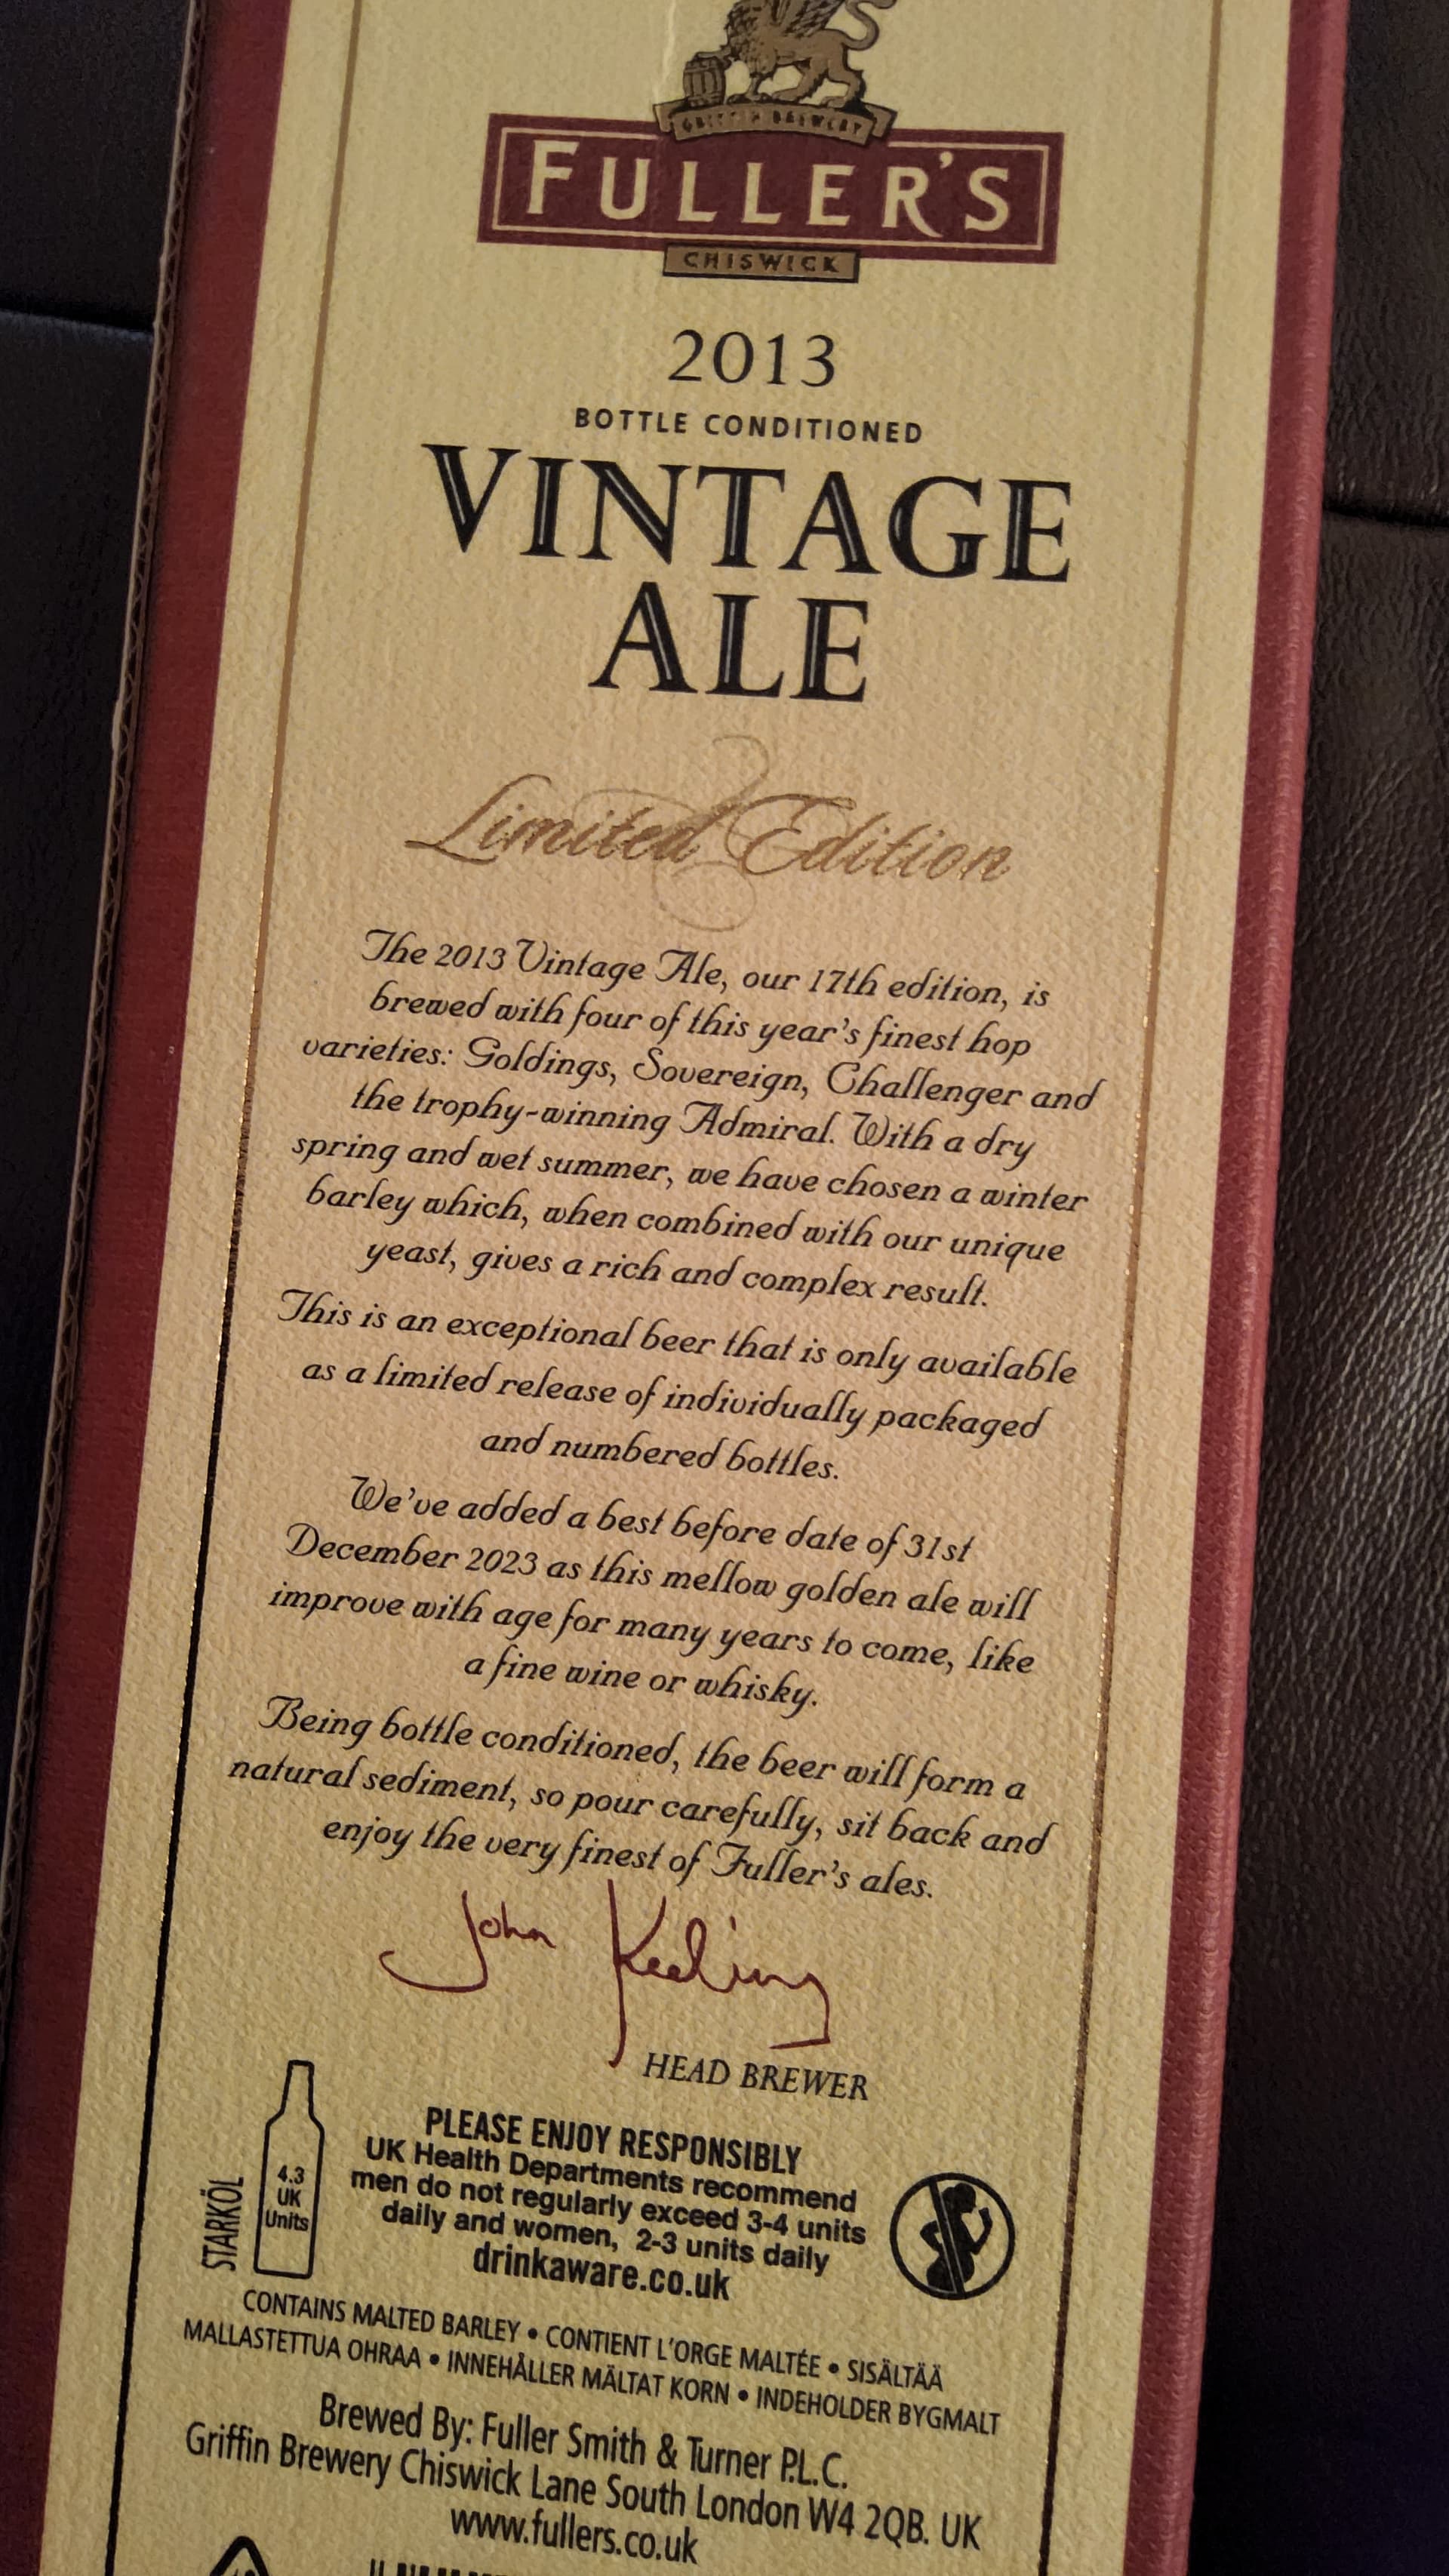 GRIFFIN BREWERY
FULLER'S
CHISWICK
2013
BOTTLE CONDITIONED
VINTAGE
ALE
Limited Edition
The 2013 Vintage Ale, our 17th edition, is
brewed with four of this year's finest hop
varieties: Goldings, Sovereign, Challenger and
the trophy-winning Admiral. With a dry
spring and wet summer, we have chosen a winter
barley which, when combined with our unique
yeast, gives a rich and complex result.
This is an exceptional beer that is only available
as a limited release of individually packaged
and numbered bottles.
We've added a best before date of 31st
December 2023 as this mellow golden ale will
improve with age for many years to come, like
a fine wine or whisky.
Being bottle conditioned, the beer will form a
natural sediment, so pour carefully, sit back and
enjoy the very finest of Fuller's ales.
John Keeling
HEAD BREWER
STARKÖL
4.3
UK
Units
PLEASE ENJOY RESPONSIBLY
UK Health Departments recommend
men do not regularly exceed 3-4 units
daily and women, 2-3 units daily
drinkaware.co.uk
CONTAINS MALTED BARLEY • CONTIENT L'ORGE MALTÉE • SISÄLTÄÄ
MALLASTETTUA OHRAA • INNEHÅLLER MÄLTAT KORN • INDEHOLDER BYGMALT
Brewed By: Fuller Smith & Turner P.L.C.
Griffin Brewery Chiswick Lane South London W4 2QB. UK
www.fullers.co.uk